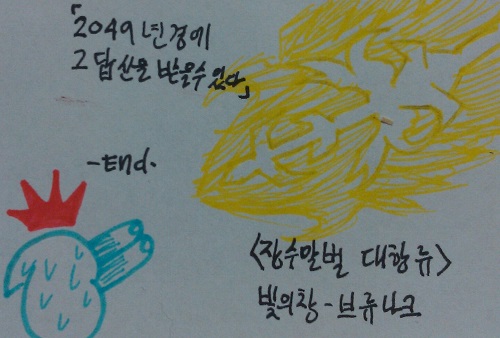 「2049년경에
그 답신을 받을수있다」
-End.
<장수말벌 대항류>
빛의창-브류나크